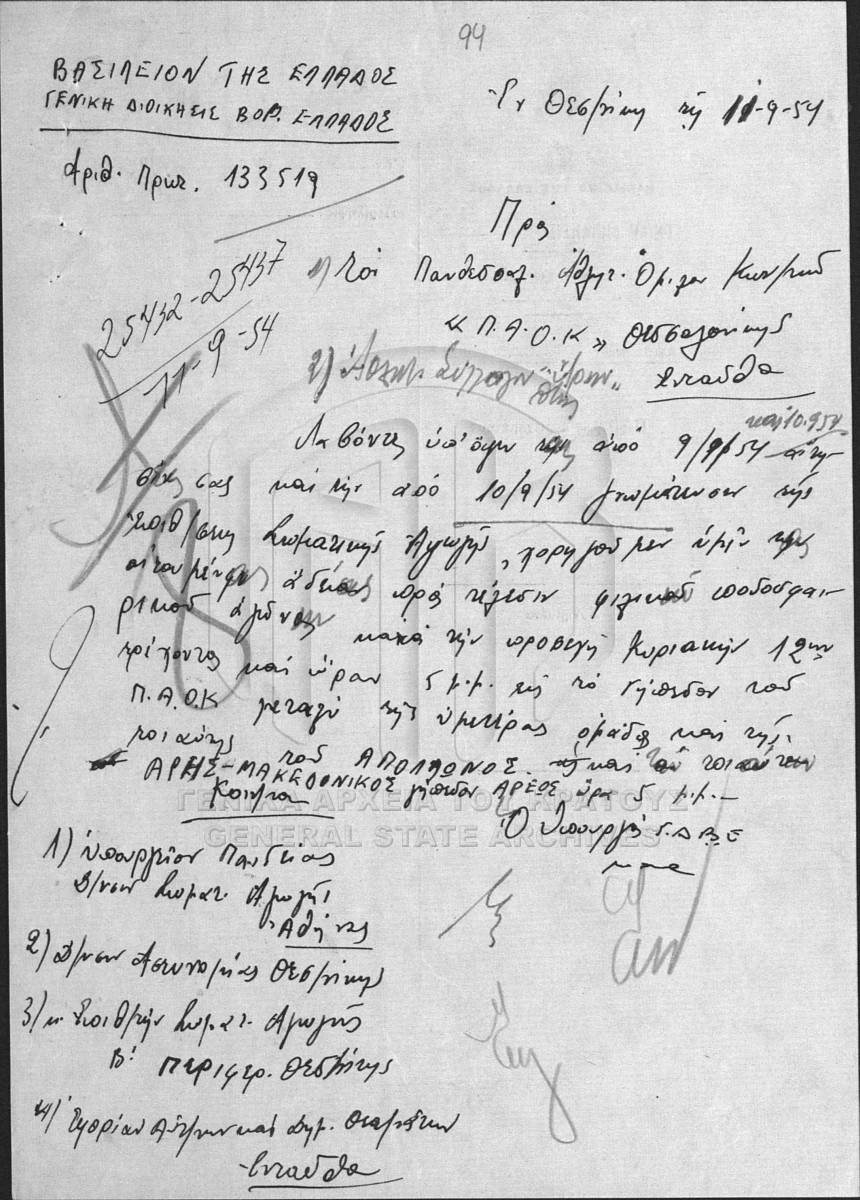 94
ΒΑΣΙΛΕΙΟΝ ΤΗΣ ΕΛΛΑΔΟΣ
ΓΕΝΙΚΗ ΔΙΟΙΚΗΣΙΣ ΒΟΡ. ΕΛΛΑΔΟΣ
Ἐν Θεσ/νίκῃ τῇ 11-9-54
Ἀριθ. Πρωτ. 133519
Πρὸς
25432-25437
11-9-54
1) Τὸν Πανθεσσαλ. Ἀθλητ. Ὅμιλον Κων/
« Π.Α.Ο.Κ » Θεσσαλονίκης
2) Ἀθλητ. Σύλλογον "Ἄρην"
Ἐνταῦθα
καὶ 10.9.54
Λαβόντες ὑπ' ὄψιν τὰς ἀπὸ 9/9/54 αἰτή-
σεις σας καὶ τὴν ἀπὸ 10/9/54 γνωμάτευσιν τῆς
Ἐπιθ/σεως Σωματικῆς Ἀγωγῆς, χορηγοῦμεν ὑμῖν τὰς
αἰτουμένας ἀδείας πρὸς τέλεσιν φιλικοῦ ποδοσφαι-
ρικοῦ ἀγῶνος κατὰ τὴν προσεχῆ Κυριακὴν 12ην
τρέχοντος καὶ ὥραν 5 μ.μ. εἰς τὸ γήπεδον τοῦ
Π.Α.Ο.Κ μεταξὺ τῆς ὑμετέρας ὁμάδος καὶ τῆς
τοιαύτης τοῦ ΑΠΟΛΛΩΝΟΣ καὶ
ΑΡΗΣ-ΜΑΚΕΔΟΝΙΚΟΣ γήπεδον ΑΡΕΩΣ ὥρα 5 μ.μ.-
Κοιν/σις
ΓΕΝΙΚΑ ΑΡΧΕΙΑ ΤΟΥ ΚΡΑΤΟΥΣ
GENERAL STATE ARCHIVES
Ὁ Ὑπουργὸς Γ.Δ.Β.Ε
1) Ὑπουργεῖον Παιδείας
Δ/νσιν Σωματ. Ἀγωγῆς
Ἀθήνας
2) Δ/νσιν Ἀστυνομίας Θεσ/νίκης
3) κ. Ἐπιθ/τὴν Σωματ. Ἀγωγῆς
Β' Περιφερ. Θεσ/νίκης
4) Ἐφορίαν καὶ Δημ. Θεαμάτων
Ἐνταῦθα